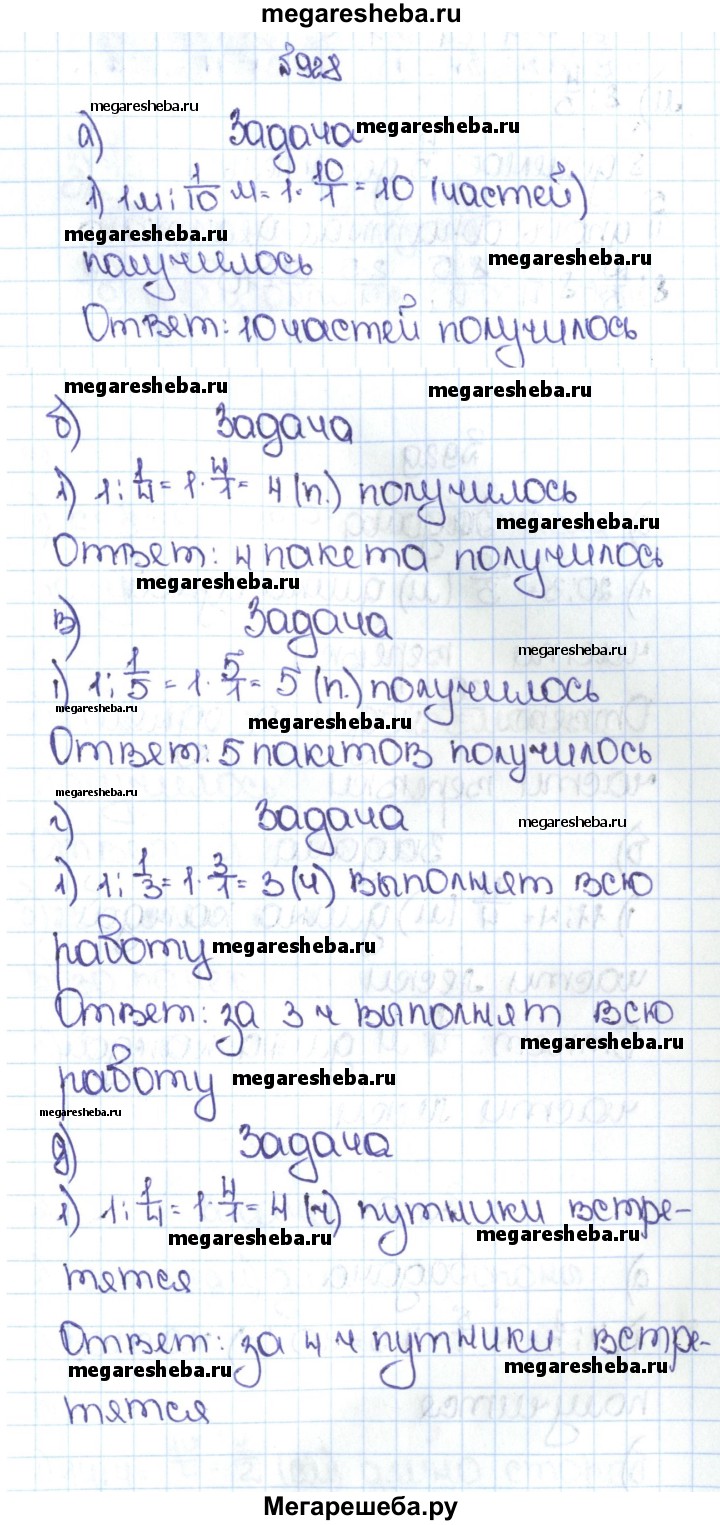 megaresheba.ru
№928
megaresheba.ru
а) Задача megaresheba.ru
1) 1м : 1/10 м = 1 · 10/1 = 10 (частей)
megaresheba.ru
получилось megaresheba.ru
Ответ: 10 частей получилось
megaresheba.ru megaresheba.ru
б) Задача
1) 1 : 1/4 = 1 · 4/1 = 4 (п.) получилось
megaresheba.ru
Ответ: 4 пакета получилось
megaresheba.ru
в) Задача
megaresheba.ru
1) 1 : 1/5 = 1 · 5/1 = 5 (п.) получилось
megaresheba.ru
megaresheba.ru
Ответ: 5 пакетов получилось
megaresheba.ru
г) Задача megaresheba.ru
1) 1 : 1/3 = 1 · 3/1 = 3 (ч) выполнят всю
работу megaresheba.ru
Ответ: за 3 ч выполнят всю
megaresheba.ru
работу megaresheba.ru
megaresheba.ru
д) Задача
1) 1 : 1/4 = 1 · 4/1 = 4 (ч) путники встре-
megaresheba.ru megaresheba.ru
тятся
Ответ: за 4 ч путники встре-
megaresheba.ru megaresheba.ru
тятся
Мегарешеба.ру